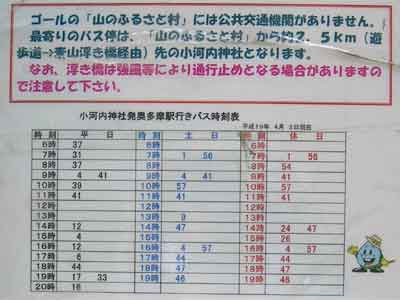 ゴールの「山のふるさと村」には公共交通機関がありません。
最寄りのバス停は、「山のふるさと村」から約2．5km（遊
歩道→青山浮き橋経由）先の小河内神社となります。
なお、浮き橋は強風等により通行止めとなる場合がありますの
で注意して下さい。
小河内神社発奥多摩駅行きバス時刻表
平成19年 4月 2日現在
時刻 平日 時刻 土日 時刻 休日
6時 37 6時 6時
7時 31 7時 1 56 7時 1 56
8時 37 8時 8時 54
9時 4 41 9時 4 41 9時 41
10時 39 10時 57 10時 57
11時 41 11時 41 11時 41
12時 12時 12時
13時 13時 9 13時
14時 12 14時 47 14時 24 47
15時 4 15時 15時 26
16時 12 16時 4 57 16時 4 57
17時 6 17時 44 17時 44
18時 44 18時 47 18時 47
19時 17 33 19時 46 19時 46
20時 16